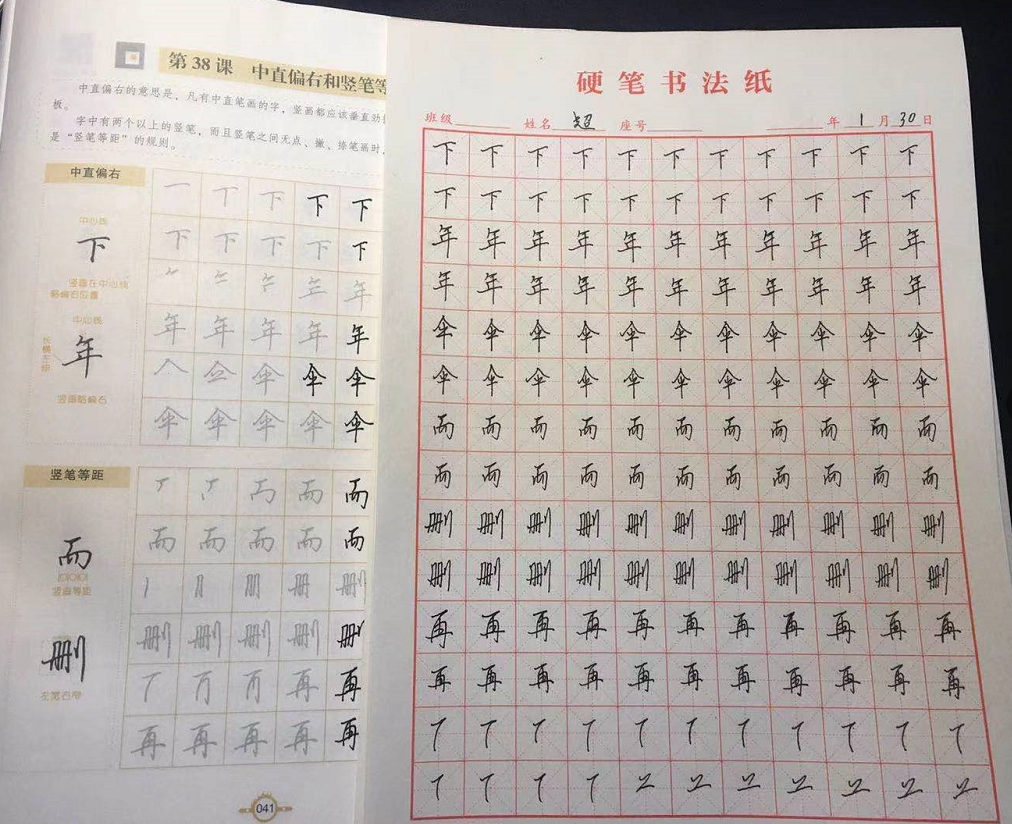 第38课 中直偏右和竖笔等
中直偏右的意思是，凡有中直笔画的字，竖画都应该垂直劲
板。
字中有两个以上的竖笔，而且竖笔之间无点、撇、捺笔画时，
是“竖笔等距”的规则。
中直偏右
中心线
下
竖画在中心线
略偏右位置
中心线
年
长横左伸
竖画略偏右
下 下 下
下 下 下 下 下
年
年 年 年 年 年
伞 伞 伞
伞 伞 伞 伞 伞
竖笔等距
而
竖画等距
删
左宽右窄
而 而
而 而 而 而 而
册 删
删 删 删 删 删
再 再
再 再 再 再 再
041
硬笔书法纸
班级 姓名 超 座号 年 1 月 30 日
下 下 下 下 下 下 下 下 下 下 下
下 下 下 下 下 下 下 下 下 下 下
年 年 年 年 年 年 年 年 年 年 年
年 年 年 年 年 年 年 年 年 年 年
伞 伞 伞 伞 伞 伞 伞 伞 伞 伞 伞
伞 伞 伞 伞 伞 伞 伞 伞 伞 伞 伞
而 而 而 而 而 而 而 而 而 而 而
而 而 而 而 而 而 而 而 而 而 而
删 删 删 删 删 删 删 删 删 删 删
删 删 删 删 删 删 删 删 删 删 删
再 再 再 再 再 再 再 再 再 再 再
再 再 再 再 再 再 再 再 再 再 再